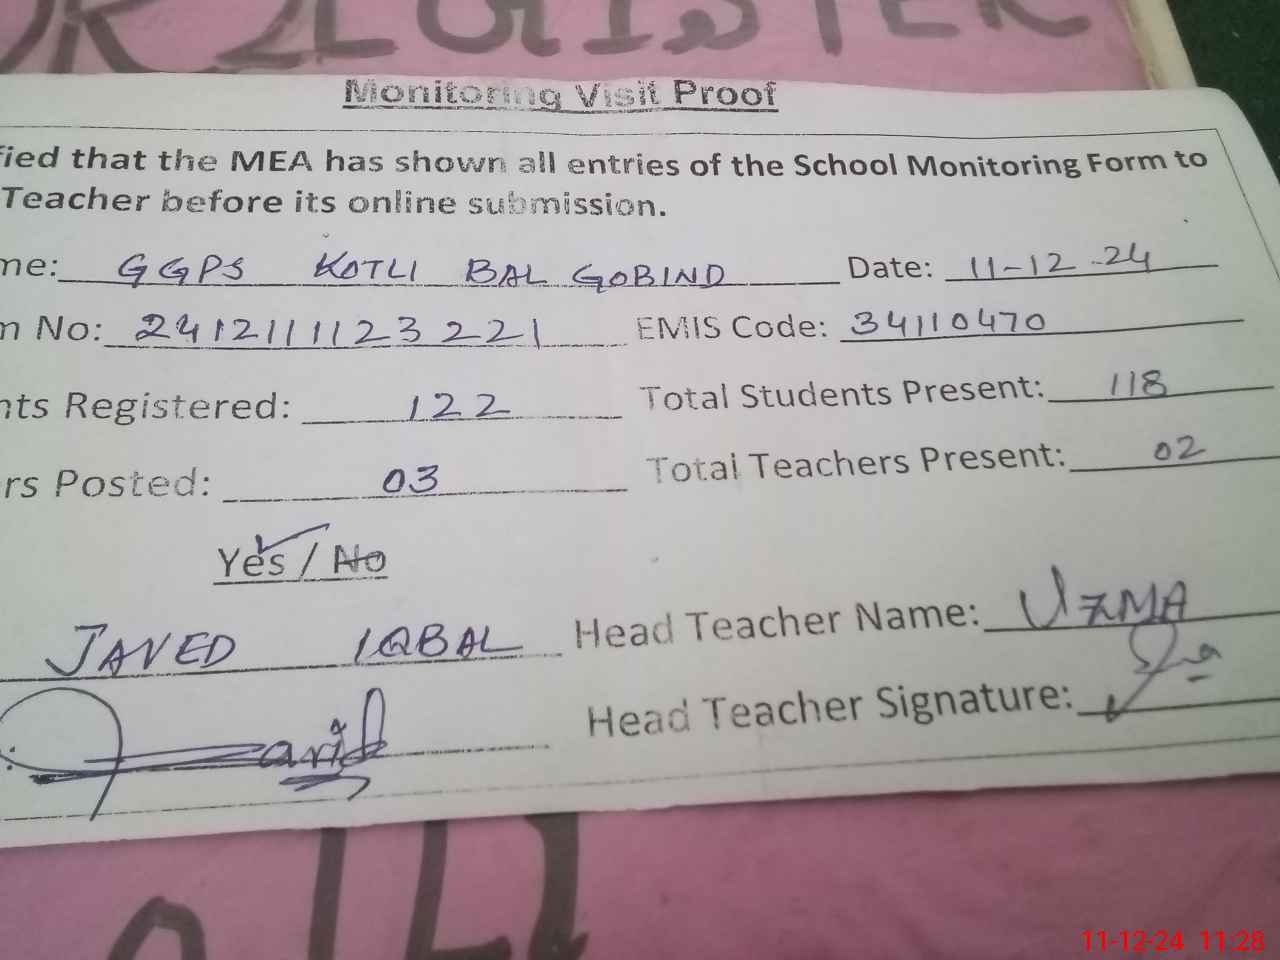 REGISTER
Monitoring Visit Proof
fied that the MEA has shown all entries of the School Monitoring Form to
Teacher before its online submission.
me: GGPS KOTLI BAL GOBIND Date: 11-12-24
n No: 2412111123221 EMIS Code: 34110470
nts Registered: 122 Total Students Present: 118
rs Posted: 03 Total Teachers Present: 02
Yes / No
JAVED IQBAL Head Teacher Name: UZMA
: Head Teacher Signature:
11-12-24 11:28